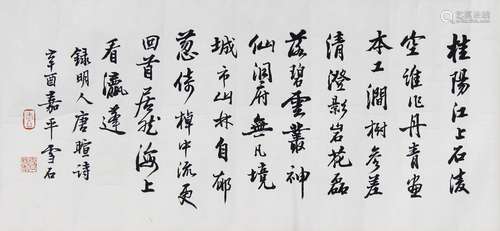 桂陽江上石淩
空誰作丹青畫
本工澗樹參差
清澄影岩花磊
落碧雲叢神
仙洞府無凡境
城市山林自郁
葱倚棹中流更
回首居然海上
看瀛蓬
録明人唐暄詩
辛酉嘉平雪石